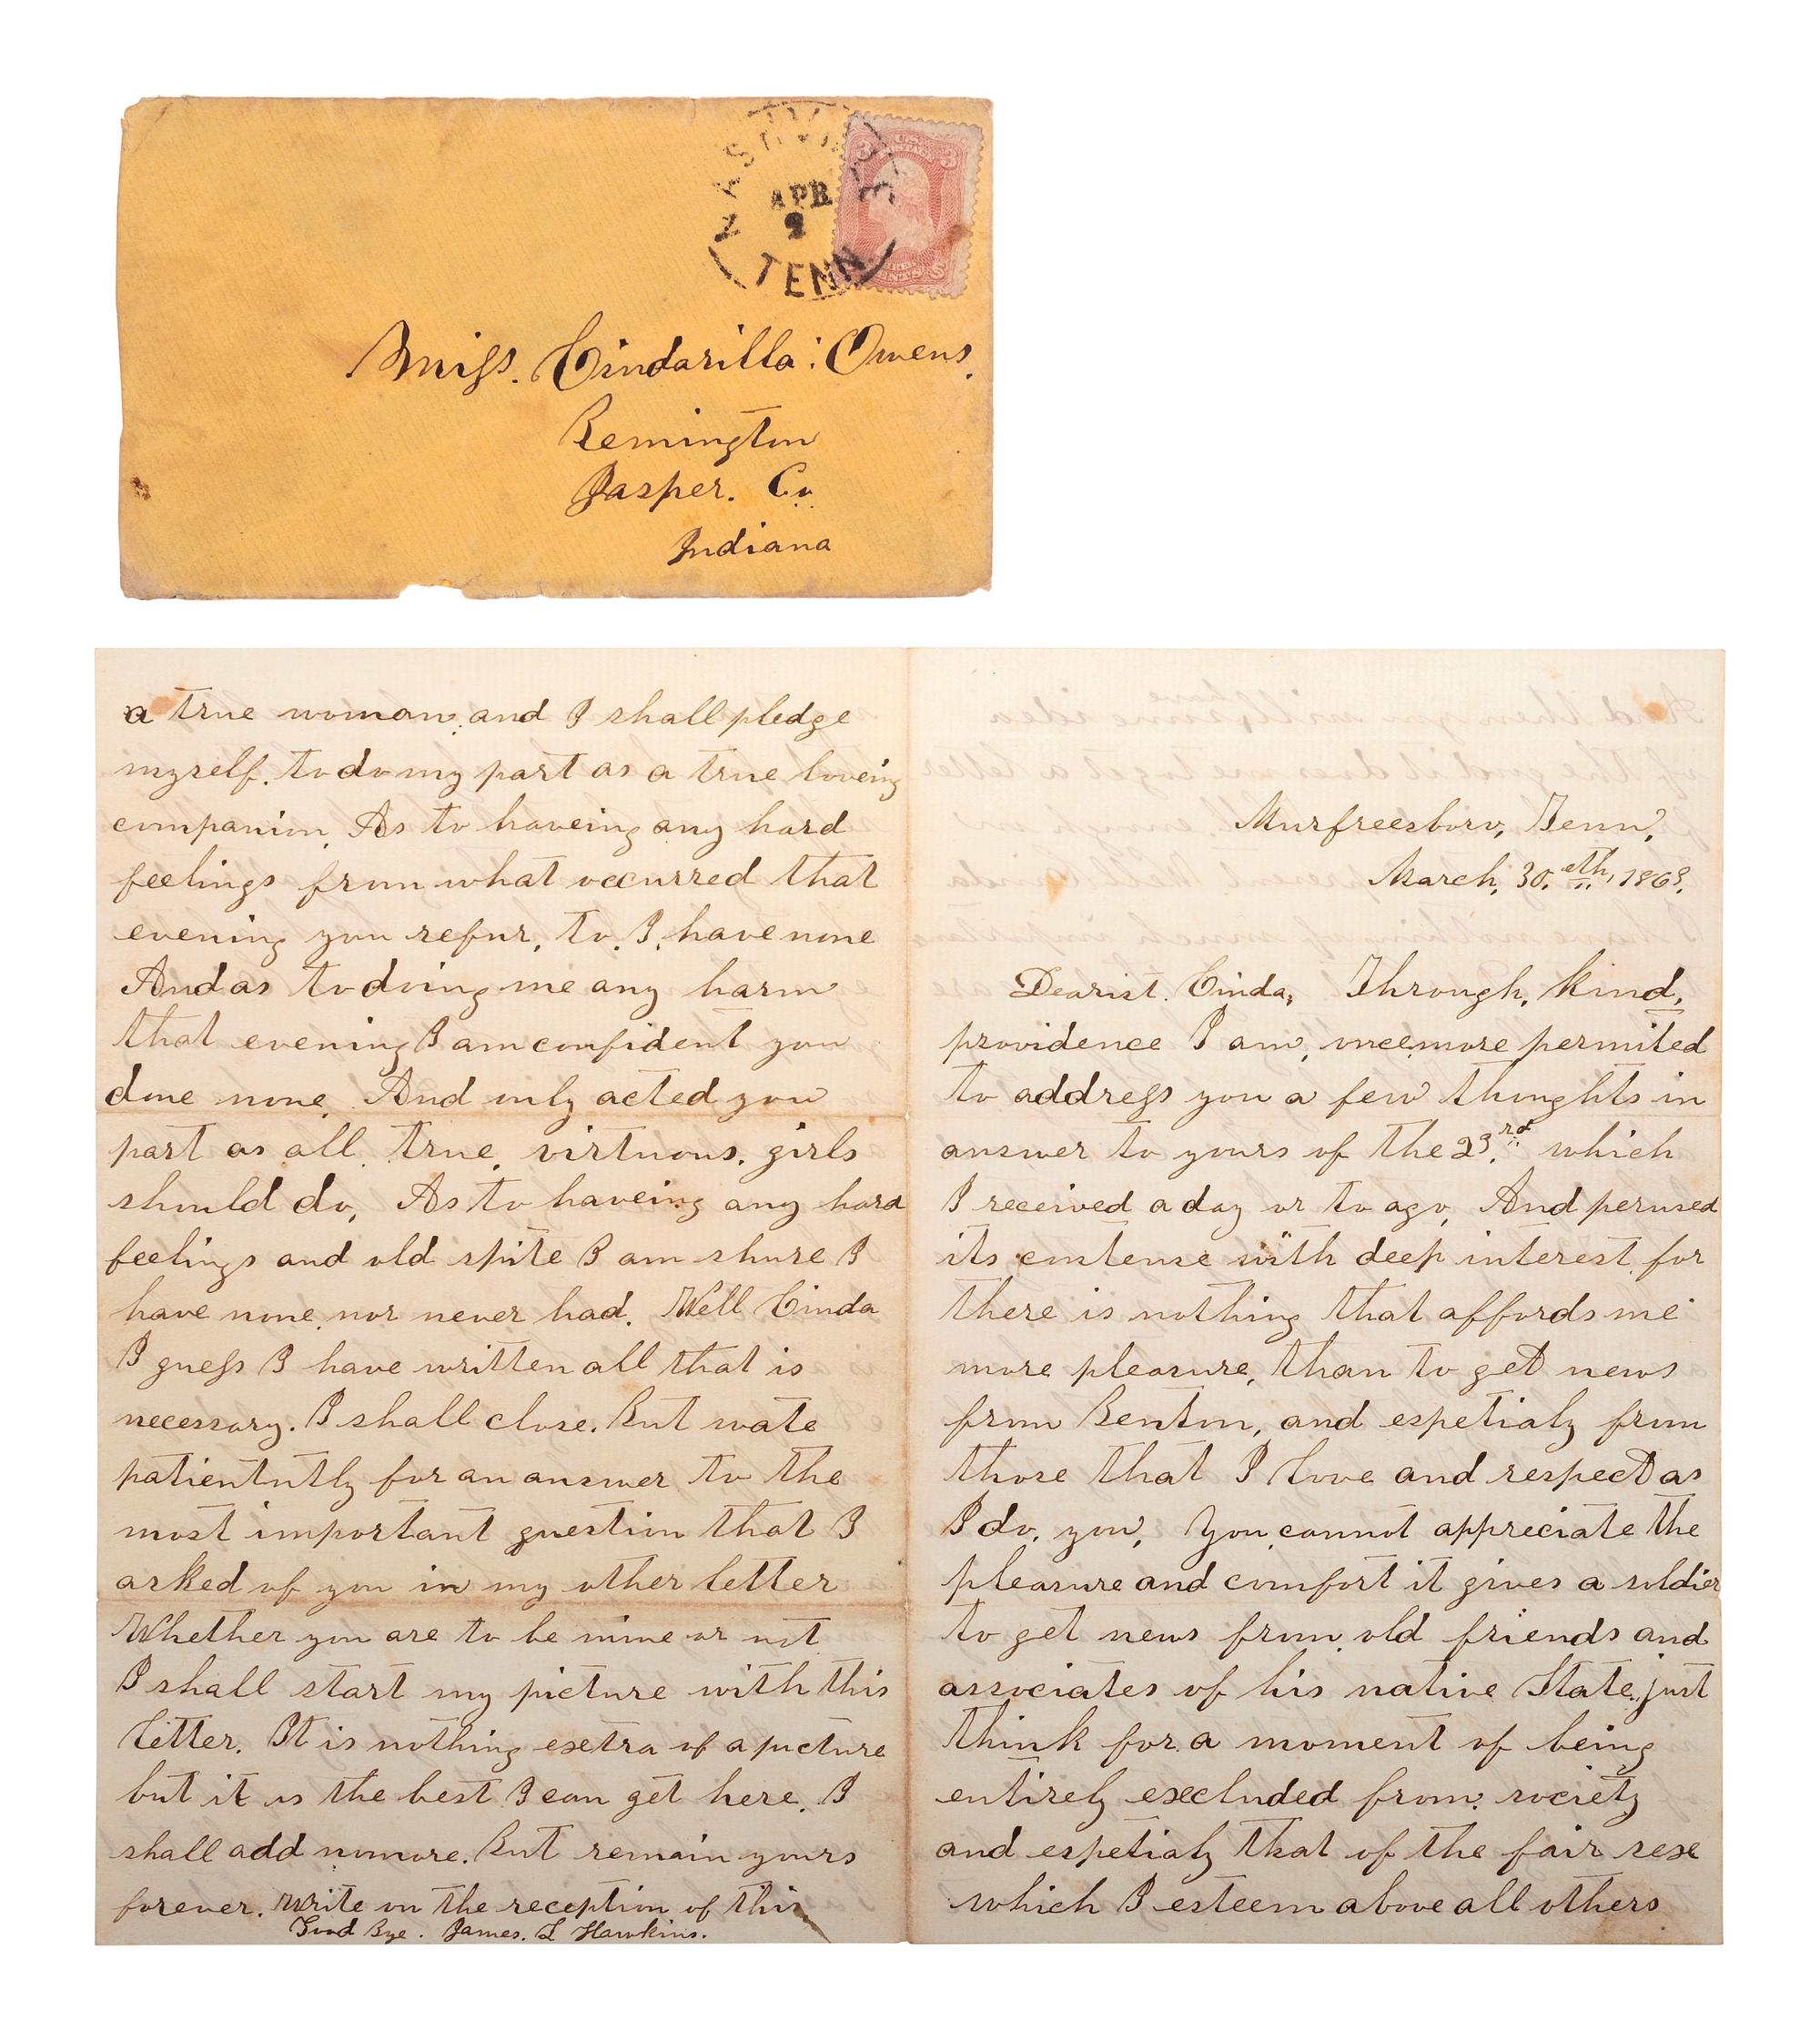 NASHVILLE
APR
TENN
U.S.
POSTAGE
3 3
CENTS
Miss. Cindarilla: Owens.
Remington
Jasper. Co.
Indiana
a true woman, and I shall pledge
myself. to do my part as a true loveing
companion. As to haveing any hard
feelings from what occurred that
evening you refur, to. I, have none
And as to doing me any harm
that evening I am confident you
done none. And only acted you
part as all. true. virtuous. girls
should do, As to haveing any hard
feelings and old spite I am shure I
have none. nor never had. Well Cinda
I guess I have written all that is
necessary. I shall close. But wate
patientntly for an answer to the
most important question that I
asked of you in my other letter
Whether you are to be mine or not
I shall start my picture with this
letter. It is nothing exetra of a picture
but it is the best I can get here. I
shall add nomore. But remain yours
forever. Write on the reception of this
Good Bye. James. L Hawkins.
Murfreesboro, Tenn,
March, 30.eth, 1863.
Dearist. Cinda, Through, kind,
providence I am, oncemore permited
to address you a few thoughts in
answer to yours of the 23.rd which
I received a day or to ago, And perused
its contense with deep interest for
there is nothing that affords me
more pleasure, than to get news
from Benton, and espetialy from
those that I love and respect as
I do. you, You cannot appreciate the
pleasure and comfort it gives a soldier
to get news from old friends and
associates of his native State. just
think for a moment of being
entirely excluded from. society
and espetialy that of the fair sexe
which I esteem above all others